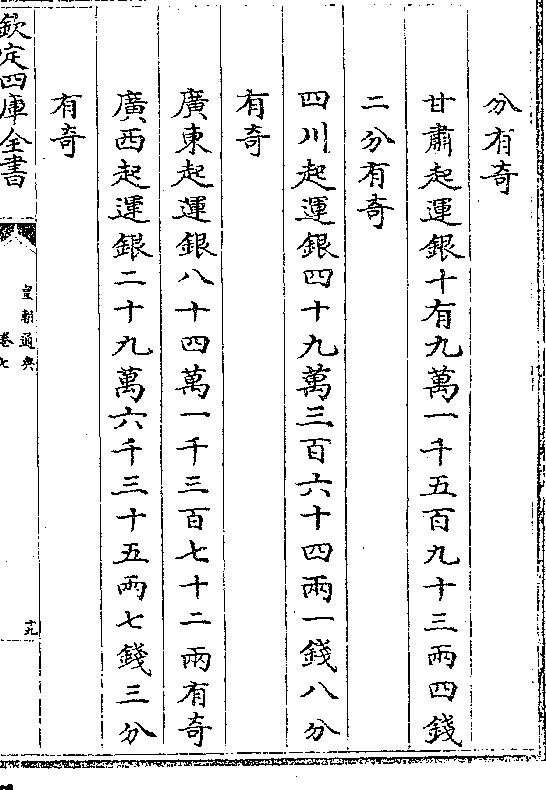 分有奇
甘肅起運銀十有九萬一千五百九十三兩四錢
二分有奇
四川起運銀四十九萬三百六十四兩一錢八分
有奇
廣東起運銀八十四萬一千三百七十二兩有奇
廣西起運銀二十九萬六千三十五兩七錢三分
有奇
欽定四庫全書
皇朝通典
卷七
十九